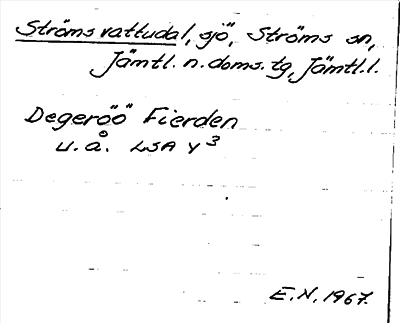 Ströms vattudal, sjö, Ströms sn,
Jämtl. n. doms. tg, Jämtl. l.
Degeröö Fierden
u. å. LSA Y3
E. N. 1967.